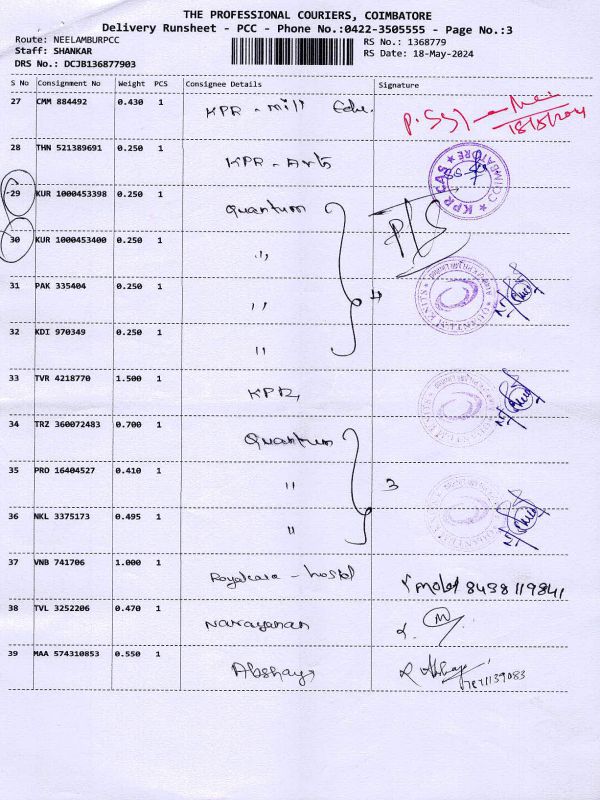 THE PROFESSIONAL COURIERS, COIMBATORE
Delivery Runsheet - PCC - Phone No.:0422-3505555 - Page No.:3
Route: NEELAMBURPCC
RS No.: 1368779
Staff: SHANKAR
RS Date: 18-May-2024
DRS No.: DCJB136877903
S No Consignment No Weight PCS Consignee Details Signature
27 CMM 884492 0.430 1 KPR - mill
18/5/2024
28 THN 521389691 0.250 1 KPR - Arts
KPR CAS COIMBATORE
29 KUR 1000453398 0.250 1 Quantum
30 KUR 1000453400 0.250 1 "
31 PAK 335404 0.250 1 " 4
32 KDI 970349 0.250 1 "
33 TVR 4218770 1.500 1 KPR
34 TRZ 360072483 0.700 1 Quantum
35 PRO 16404527 0.410 1 " 3
36 NKL 3375173 0.495 1 "
37 VNB 741706 1.000 1 Royalcare - hostel 8438119841
38 TVL 3252206 0.470 1 Narayanan
39 MAA 574310853 0.550 1